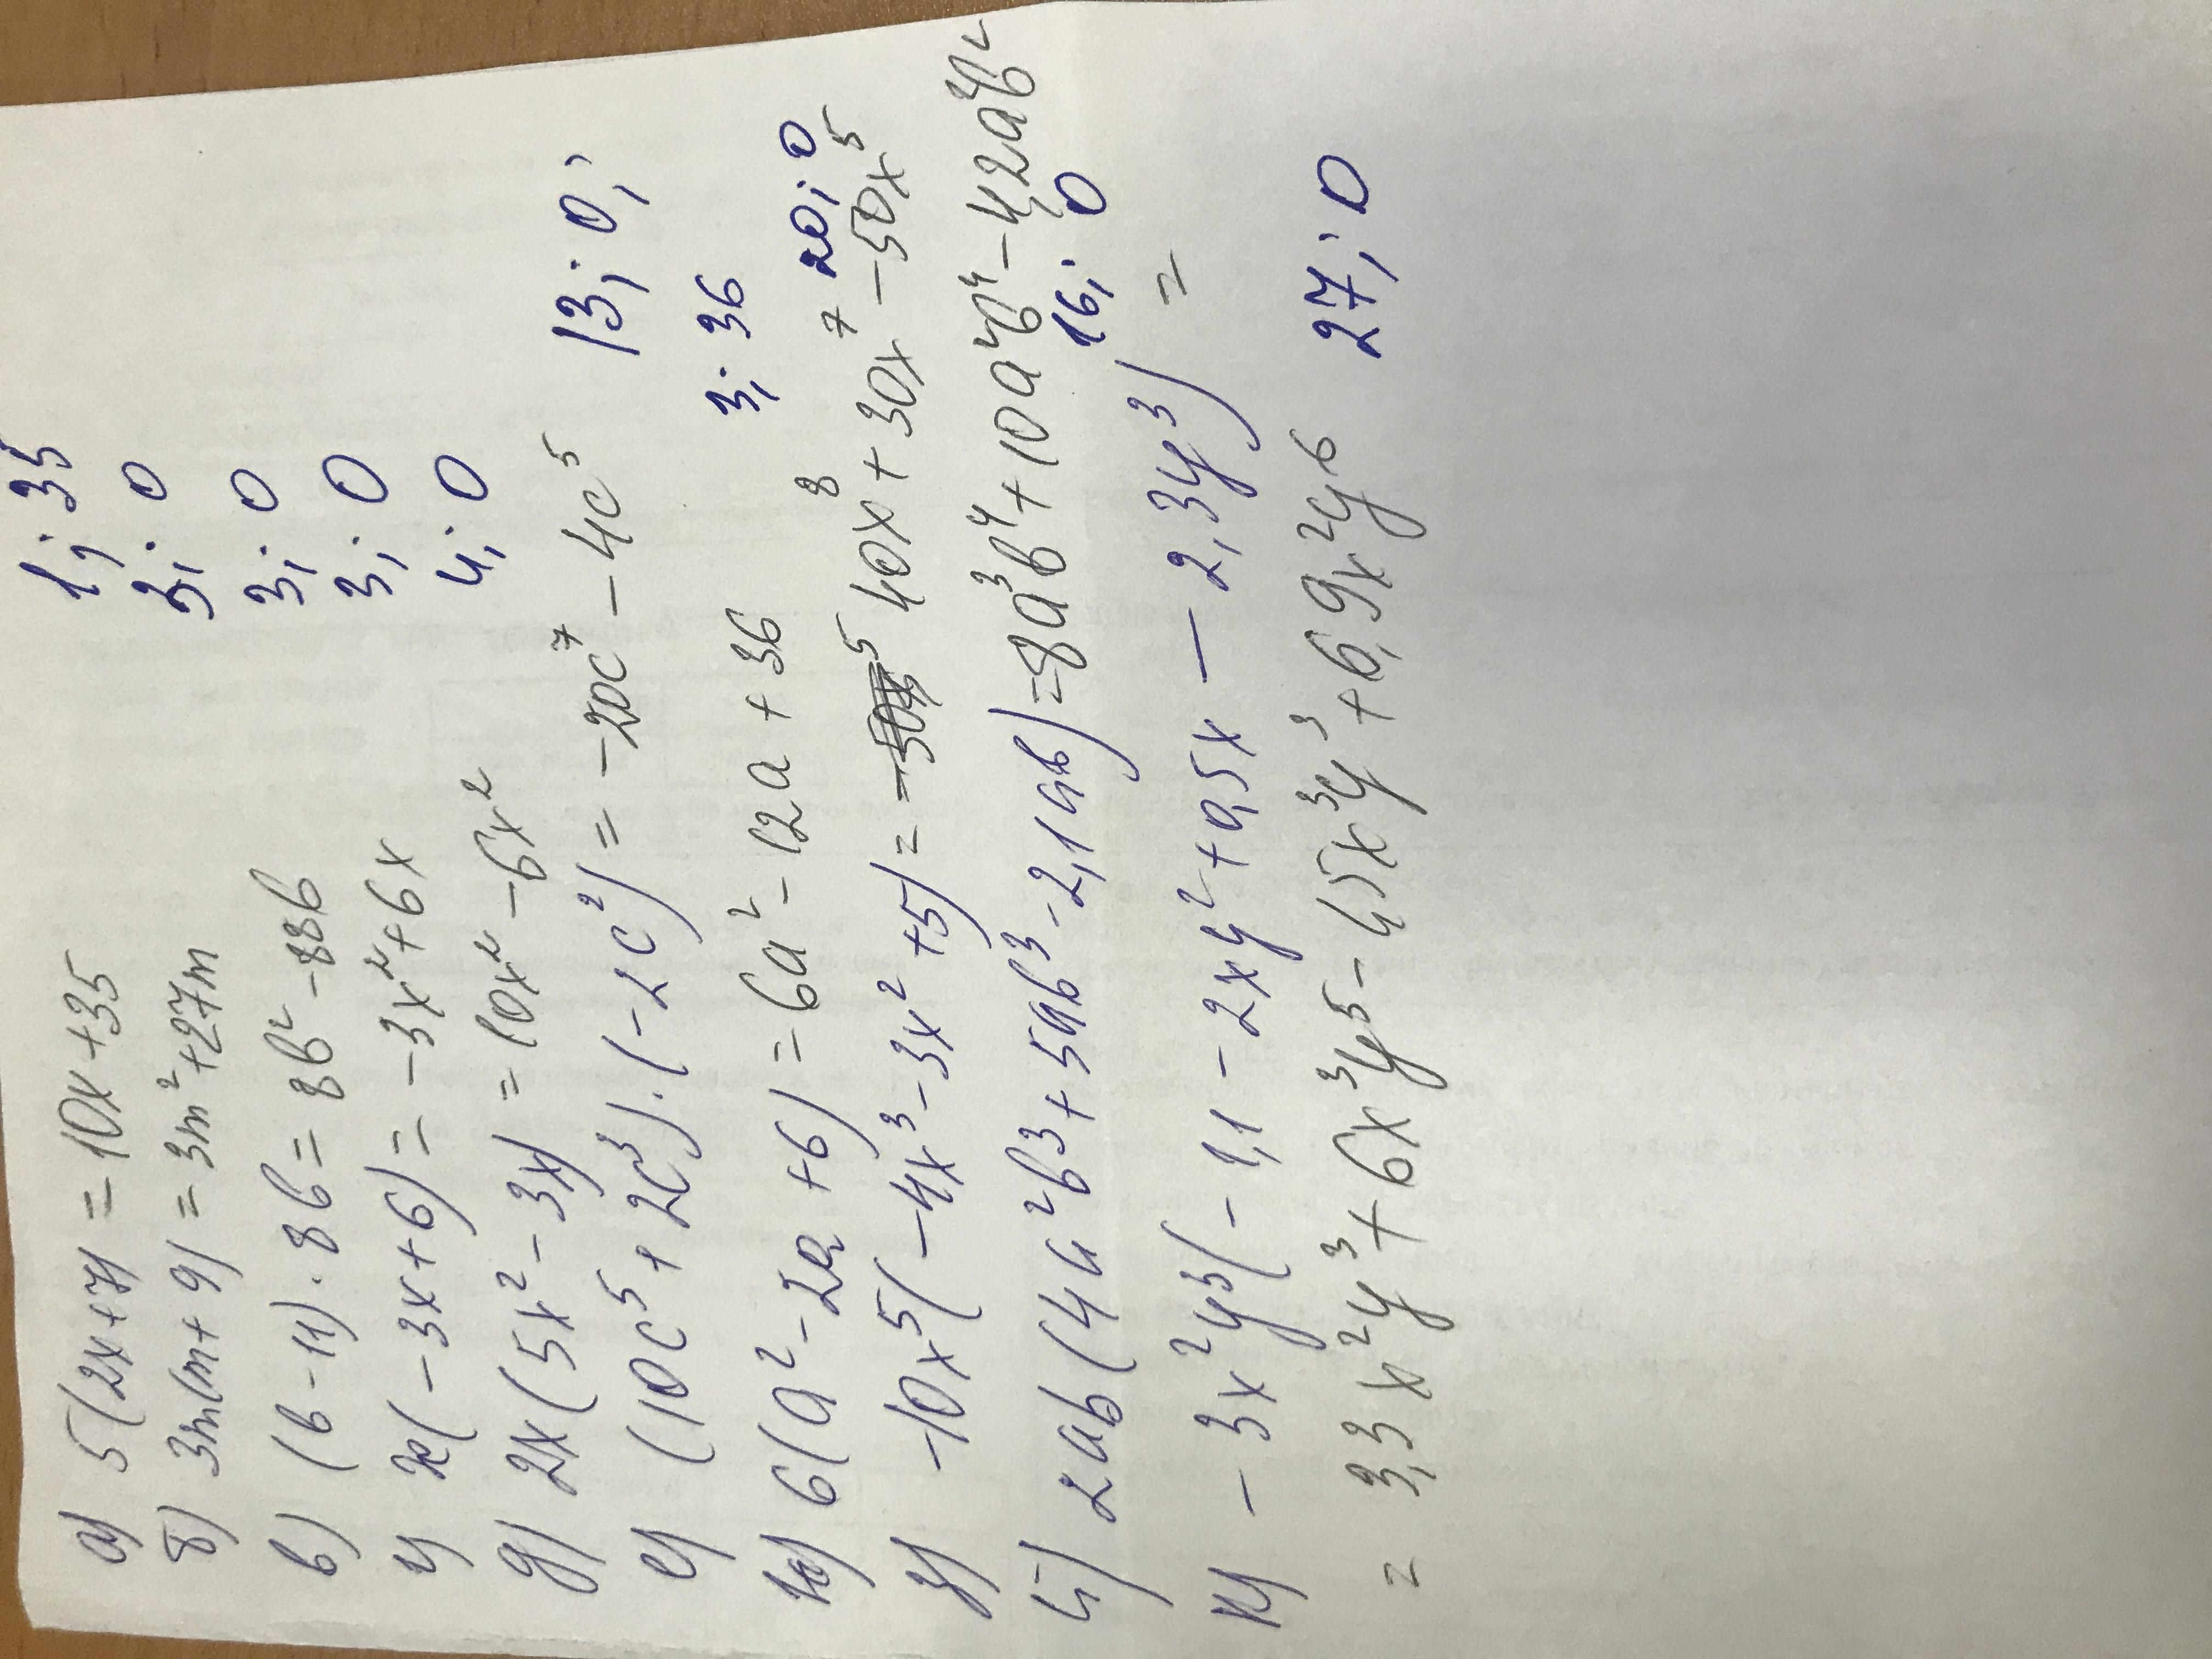 а) 5(2x+7) = 10x+35 1; 35
б) 3m(m+9) = 3m²+27m 3; 0
в) (b-11)·8b = 8b²-88b 3; 0
г) x(-3x+6) = -3x²+6x 3; 0
д) 2x(5x²-3x) = 10x²-6x² 4; 0
е) (10c⁵+2c³)·(-2c²) = -20c⁷-4c⁵ 13; 0;
ж) 6(a²-2a+6) = 6a²-12a+36 3; 36
з) -10x⁵(-4x³-3x²+5) = 40x⁸+30x⁷-50x⁵ 20; 0
и) 2ab(4a²b³+5ab³-2,1ab) = 8a³b⁴+10a²b⁴-4,2a²b² 16; 0
к) -3x²y³(-1,1-2xy²+0,5x-2,3y³) =
= 3,3x²y³+6x³y⁵-1,5x³y³+6,9x²y⁶ 27; 0